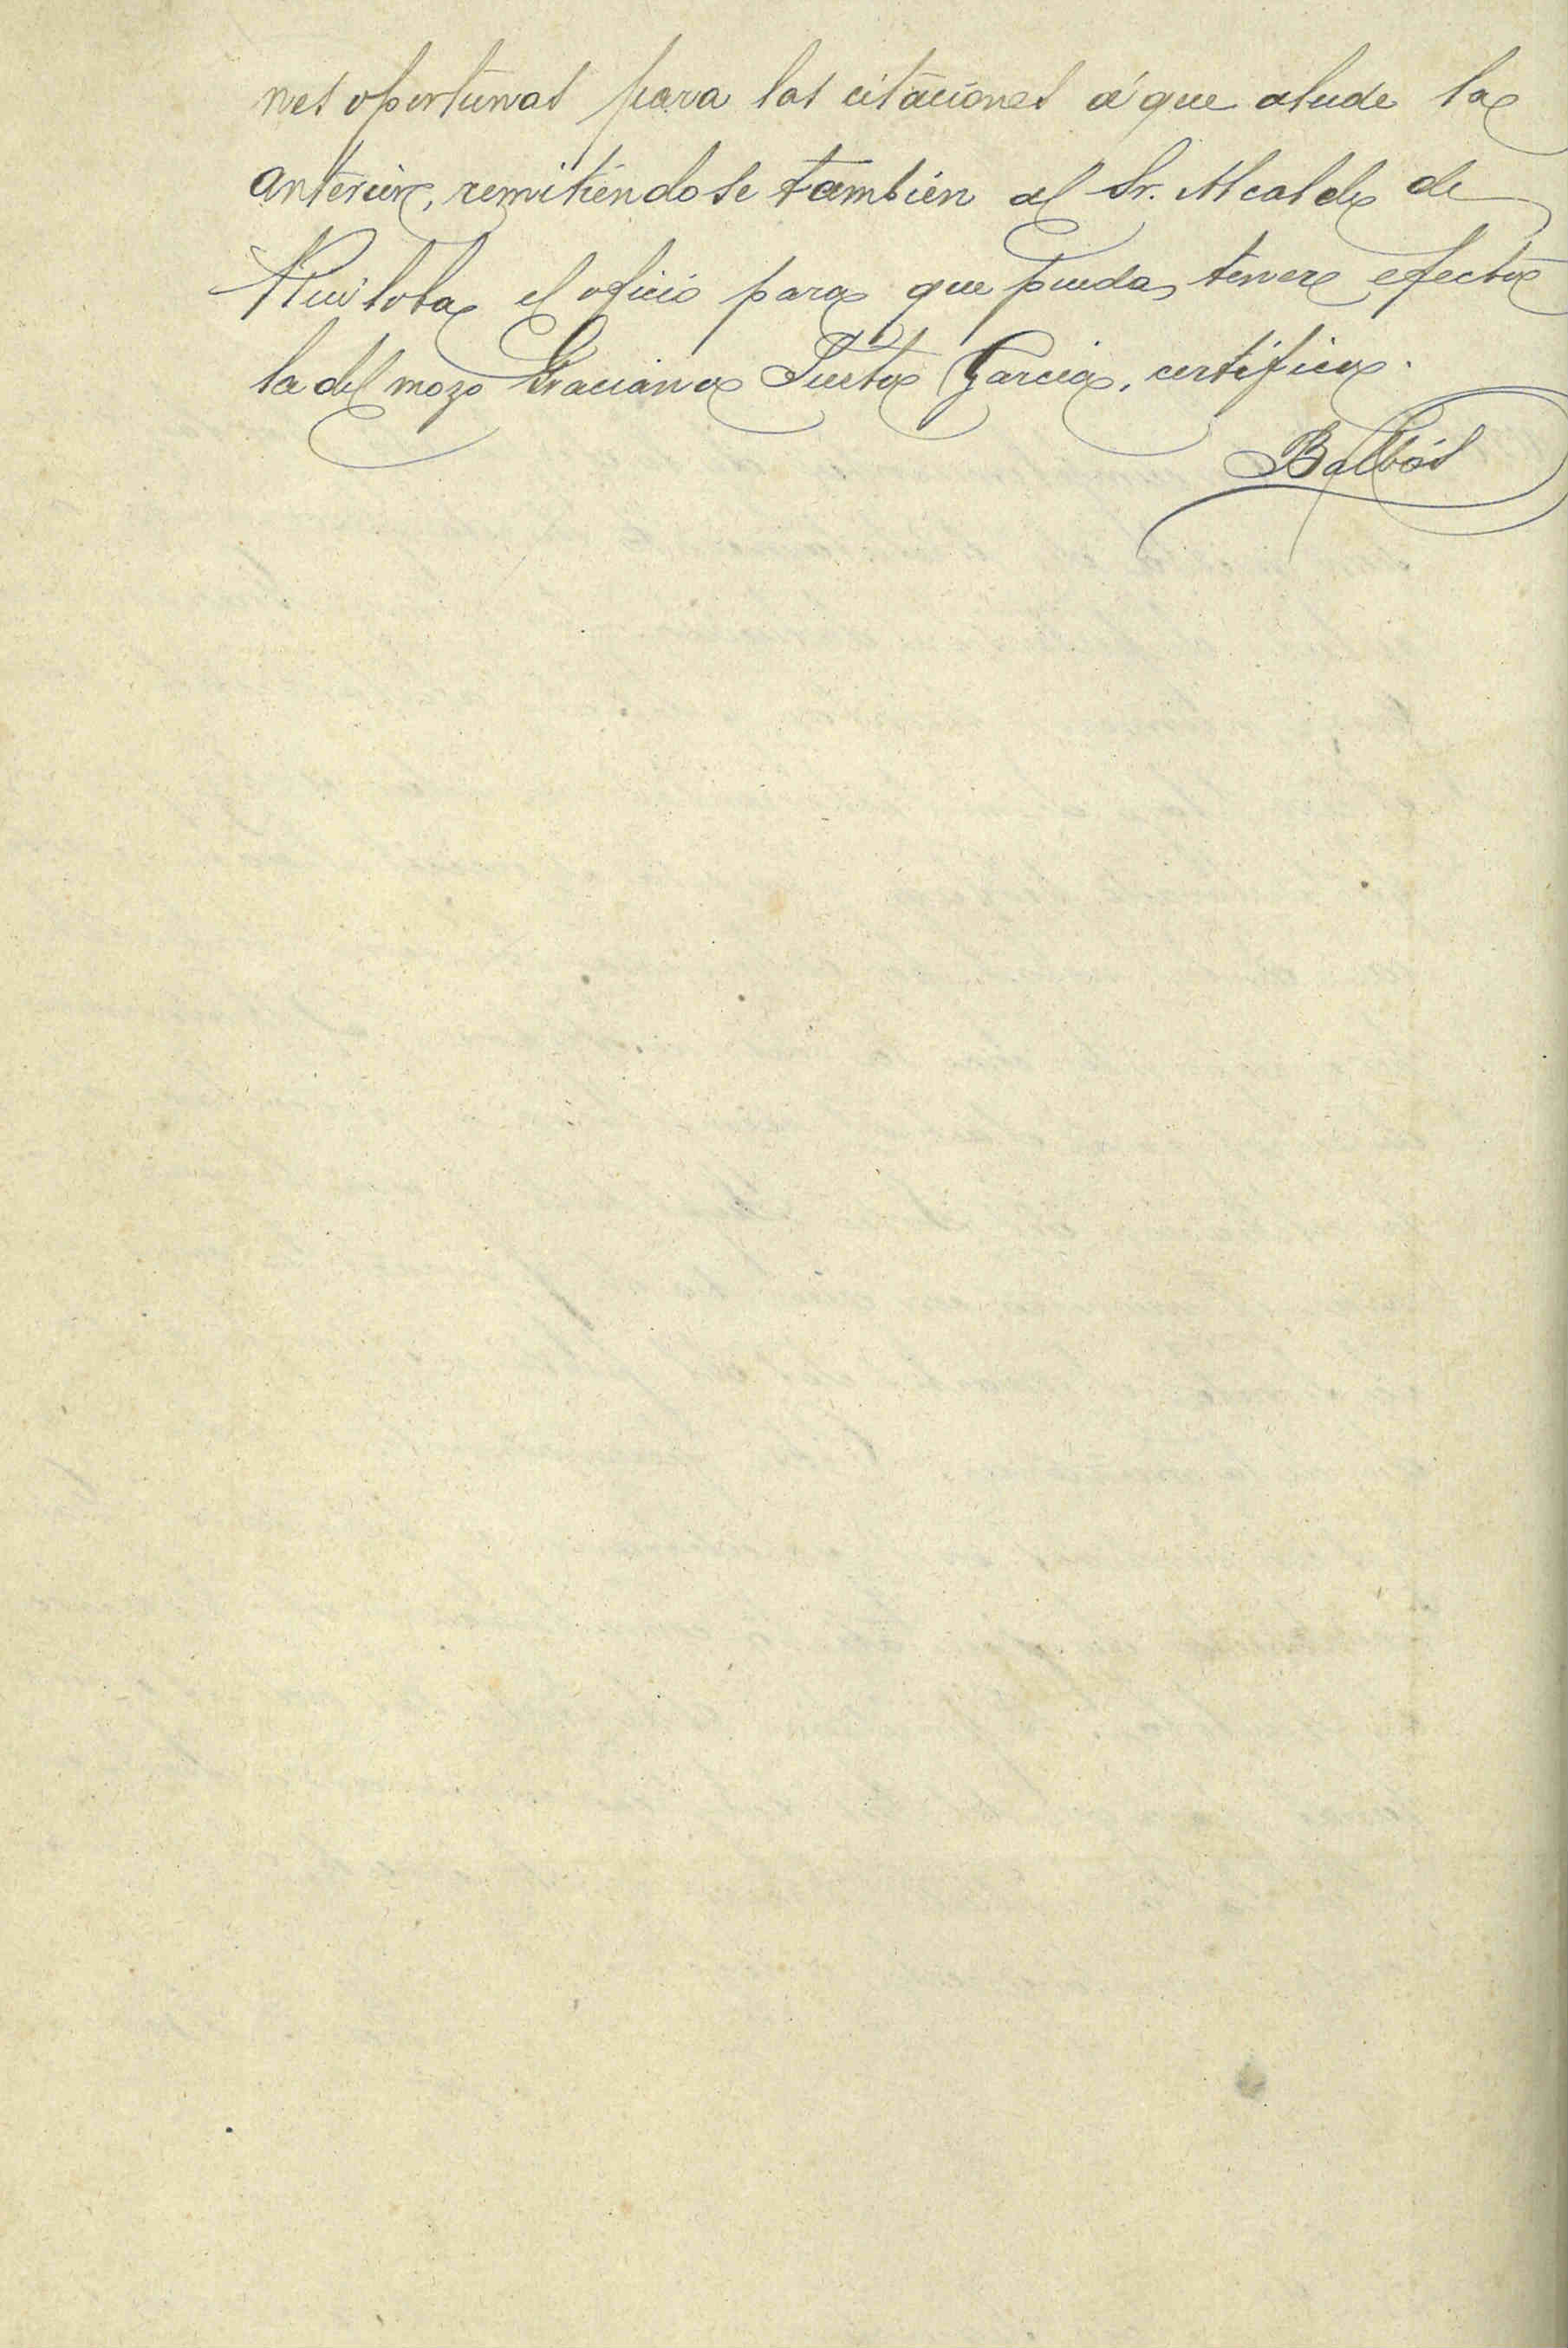 nes oportunas para las citaciones á que alude la
anterior, remitiéndose también al Sr. Alcalde de
Ruiloba el oficio para que pueda tener efecto
la del mozo Graciano García, certifico.
Balbás